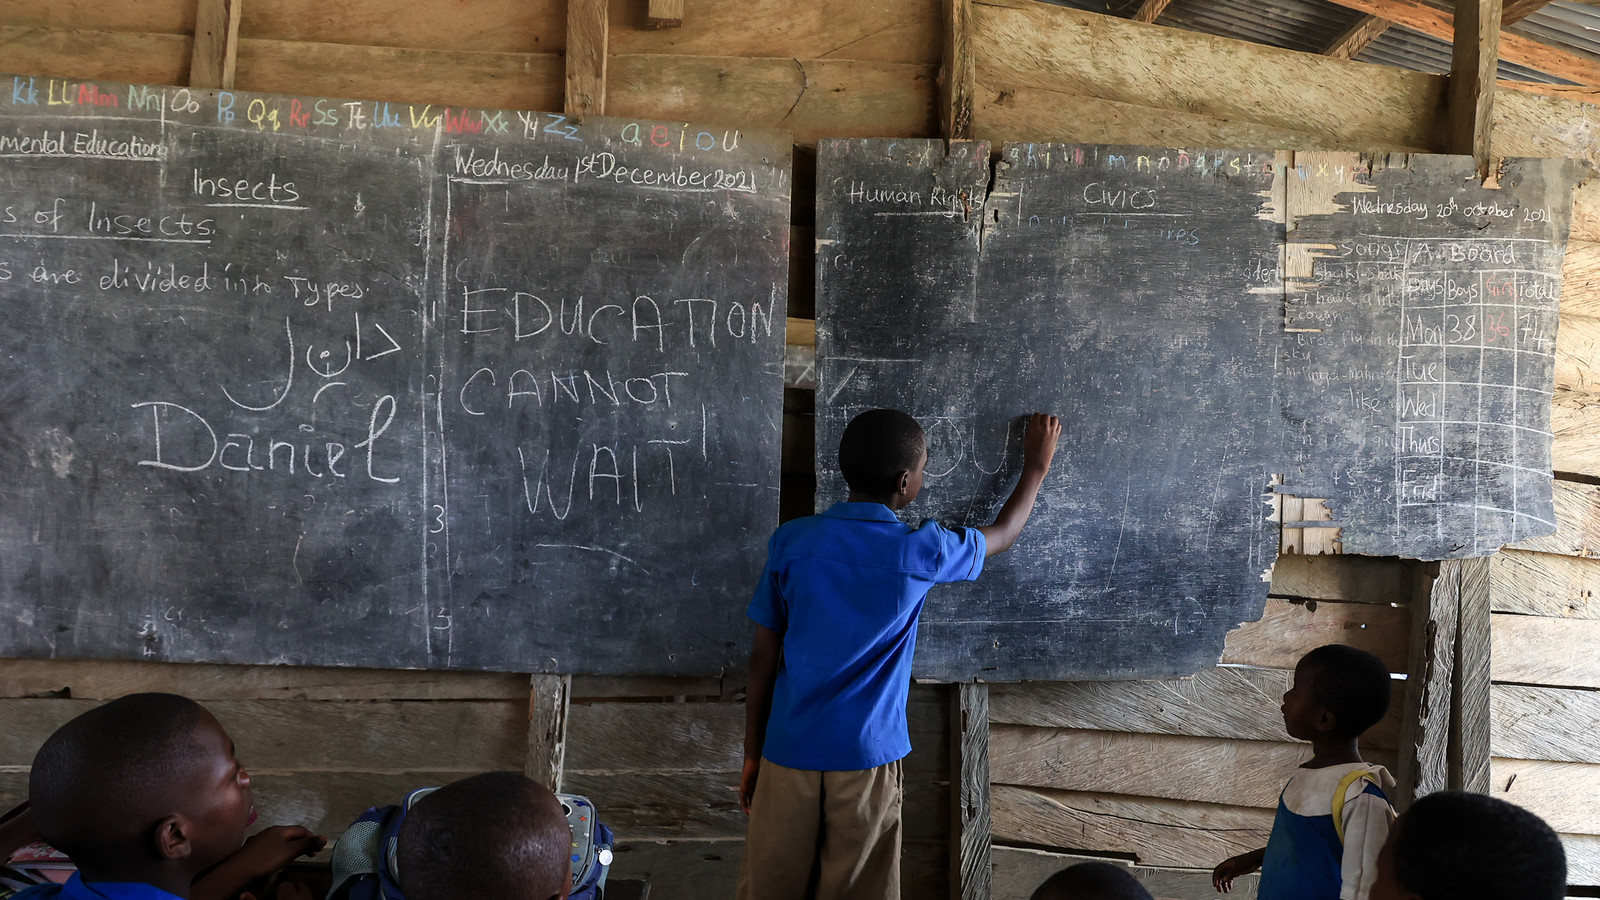 Kk Ll Mm Nn Oo Pp Qq Rr Ss Tt Uu Vv Ww Xx Yy Zz a e i o u
mental Education
Insects
s of Insects.
s are divided into Types.
دانل
Daniel
Wednesday 1st December 2021
EDUCATION
CANNOT
WAIT!
3
5
Human Rights
Civics
OU
Wednesday 20th october 2021
songs
shaky-shaky
I have a litt
cough
Birds fly in the
sky
like
A. Board
Days Boys Girls Total
Mon 38 36 74
Tue
Wed
Thurs
Frid